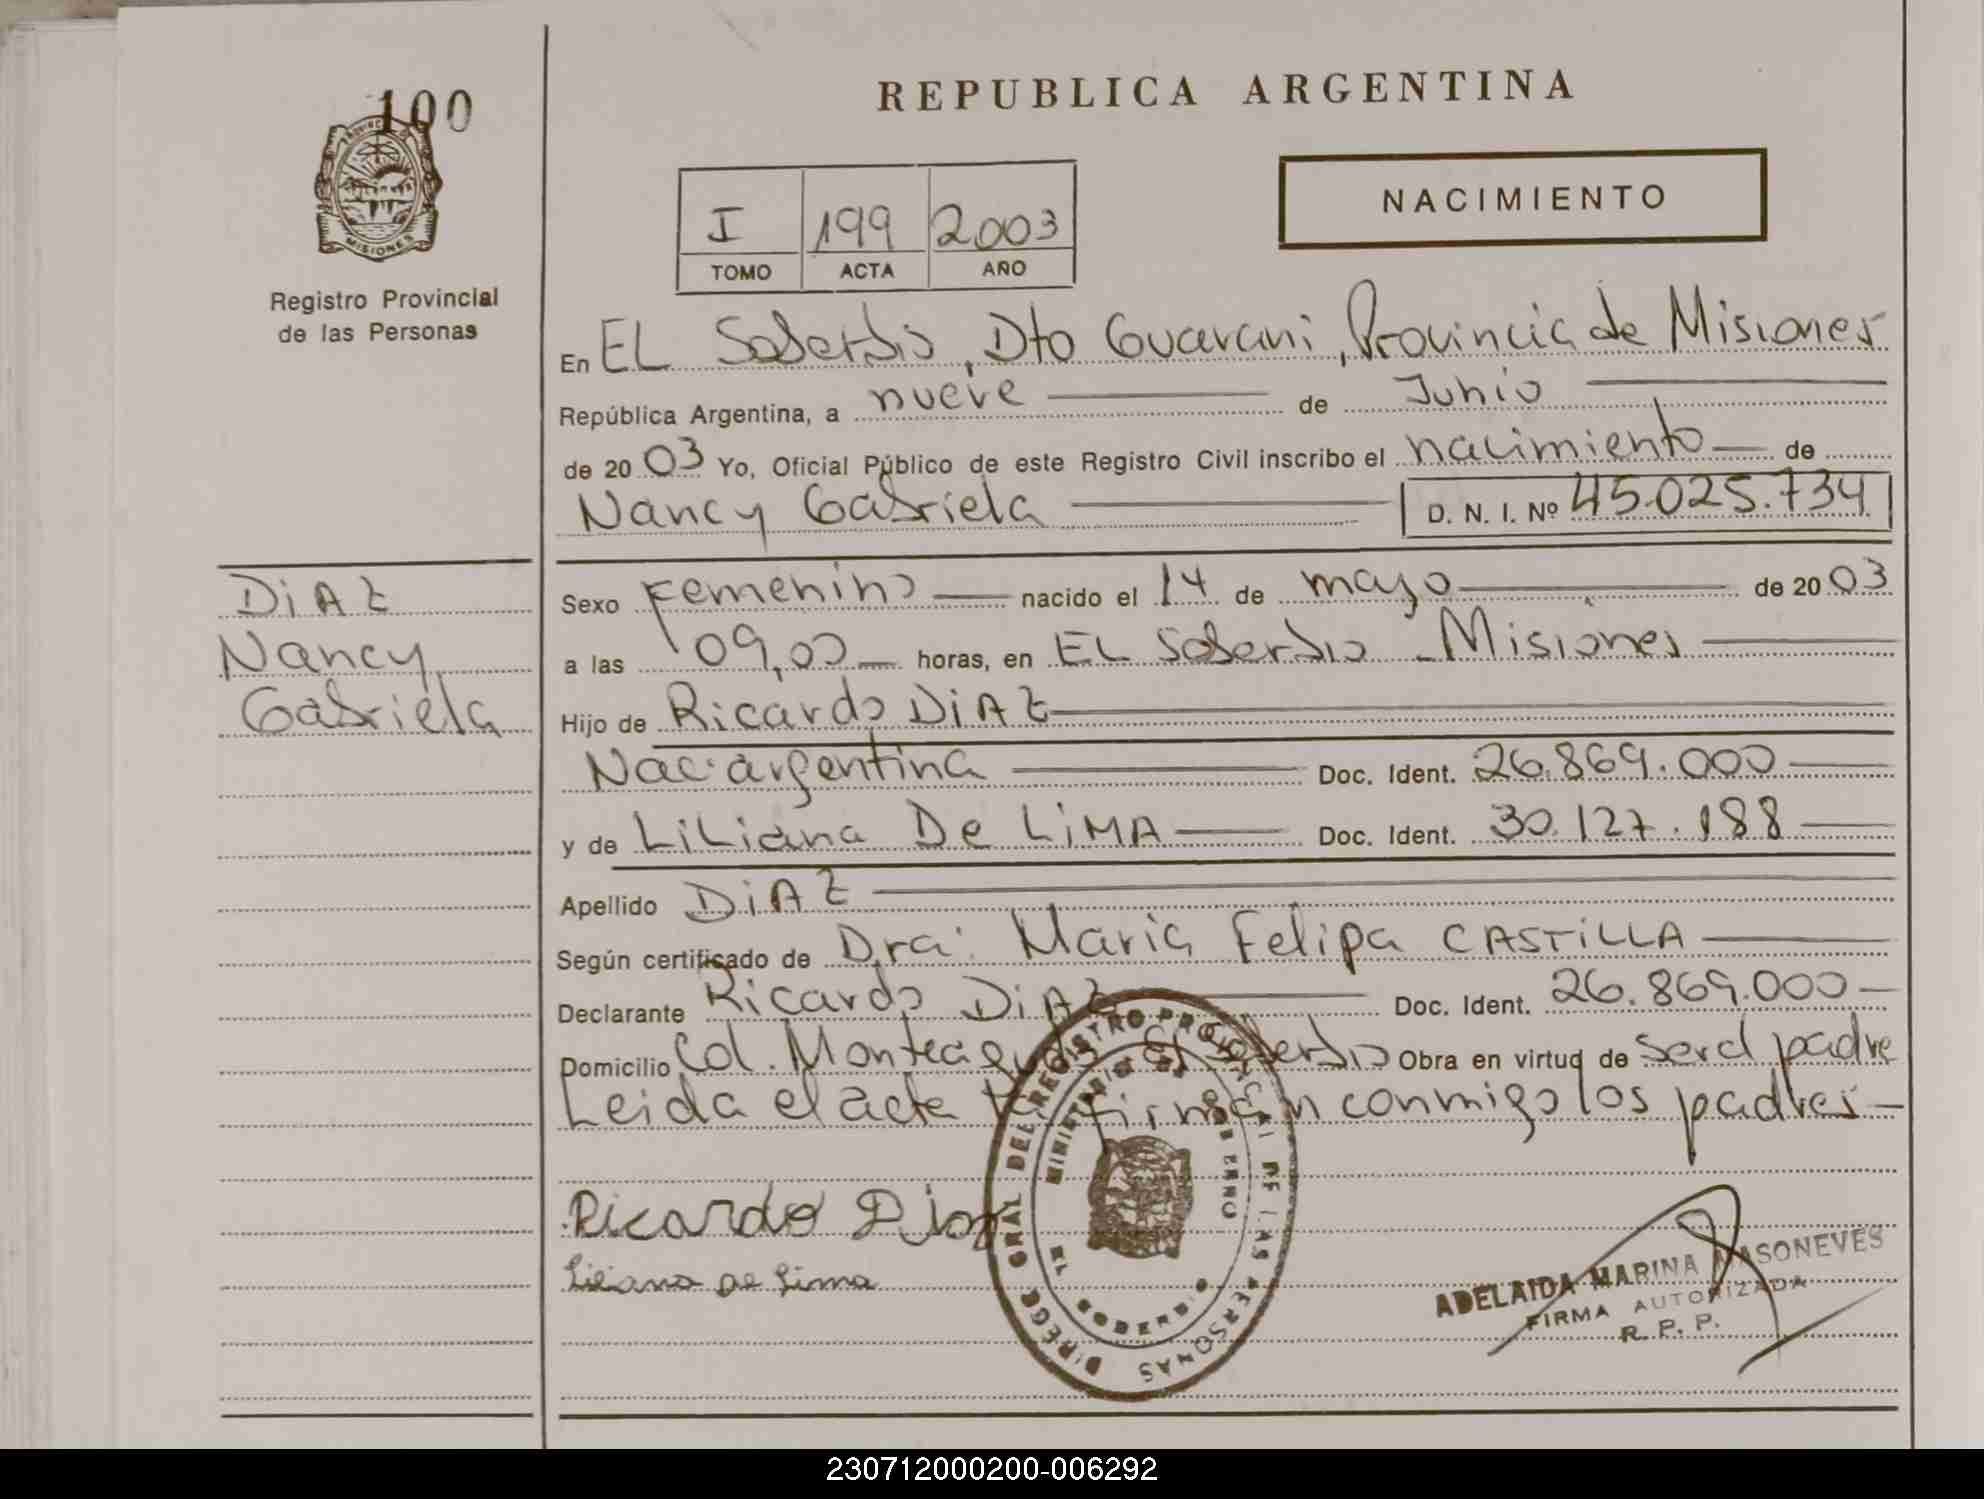 100
PROVINCIA
MISIONES
Registro Provincial
de las Personas
REPUBLICA ARGENTINA
I 199 2003
TOMO ACTA AÑO
NACIMIENTO
En EL Soberbio, Dto Guarani, Provincia de Misiones
República Argentina, a nueve de Junio
de 20 03 Yo, Oficial Público de este Registro Civil inscribo el nacimiento de
Nancy Gabriela D. N. I. Nº 45.025.734
DiAZ
Nancy
Gabriela
Sexo Femenino nacido el 14 de mayo de 20 03
a las 09,00 horas, en EL Soberbio - Misiones
Hijo de Ricardo DiAZ
Nac. argentina Doc. Ident. 26.869.000
y de LiLiana De LiMA Doc. Ident. 30.127.188
Apellido DiAZ
Según certificado de Dra. Maria Felipa CASTiLLA
Declarante Ricardo DiAZ Doc. Ident. 26.869.000
Domicilio Col. Monteagudo El Soberbio Obra en virtud de ser el padre
Leida el acta la firman conmigo los padres
Ricardo Diaz
Liliana de Lima
DIRECC GRAL DEL REGISTRO PROVINCIAL DE LAS PERSONAS
MINISTERIO DE GOBIERNO
EL SOBERBIO
ADELAIDA MARINA MASONEVES
FIRMA AUTORIZADA
R. P. P.
230712000200-006292